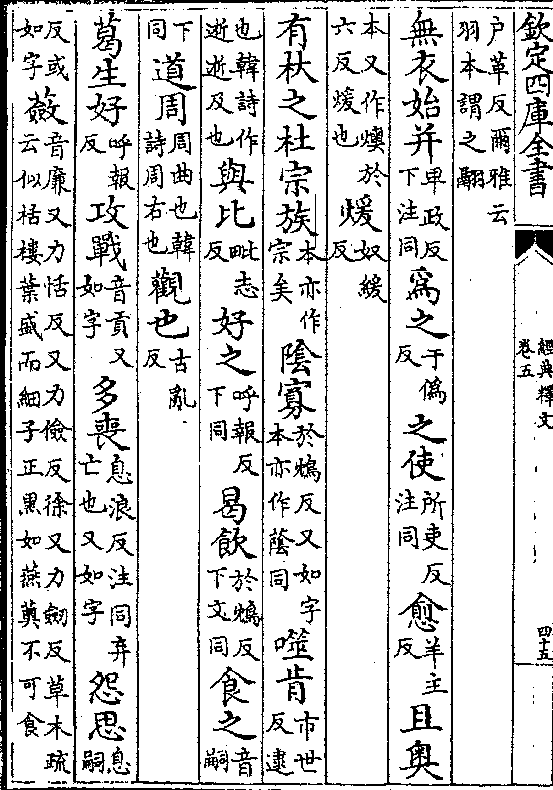 欽定四庫全書
經典釋文
卷五
四十五
户革反爾雅云羽本謂之翮
無衣始并卑政反下注同爲之于僞反之使所吏反注同愈羊主反且奧
本又作燠於六反煖也煖奴緩反
有杕之杜宗族本亦作宗矣陰寡於鴆反又如字本亦作蔭同噬肯市世反逮
也韓詩作逝逝及也與比毗志反好之呼報反下同曷飲於鴆反下文同食之音嗣
下同道周周曲也韓詩周右也觀也古亂反
葛生好呼報反攻戰音貢又如字多喪息浪反注同弃亡也又如字怨思息嗣
反或如字蘞音廉又力恬反又力儉反徐又力劒反草木疏云似栝樓葉盛而細子正黑如燕薁不可食